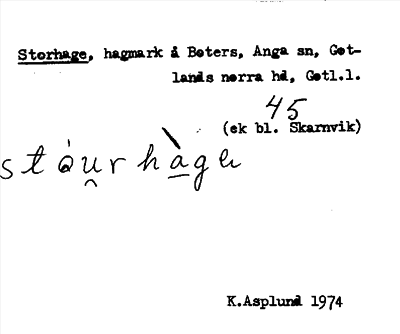 Storhage, hagmark å Boters, Anga sn, Got-
lands norra hd, Gotl.l.
45
(ek bl. Skarnvik)
stóu̯rhàge
K.Asplund 1974